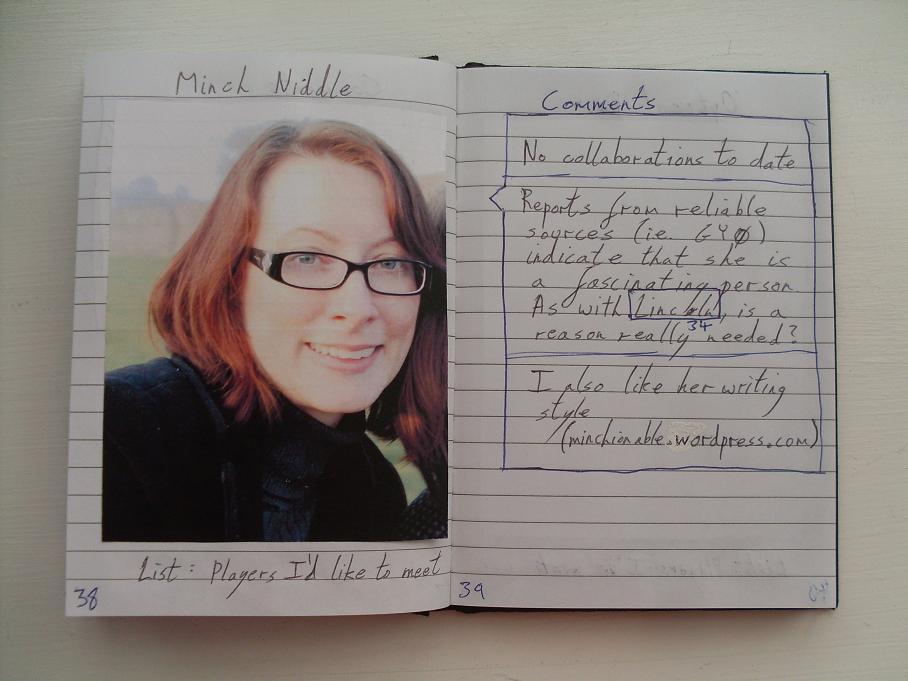 Minch Niddle
List: Players I'd like to meet
38
Comments
No collaborations to date
Reports from reliable
sources (ie. GYØ)
indicate that she is
a fascinating person
As with Lincoln, is a
34
reason really needed?
I also like her writing
style
(minchionable.wordpress.com)
39